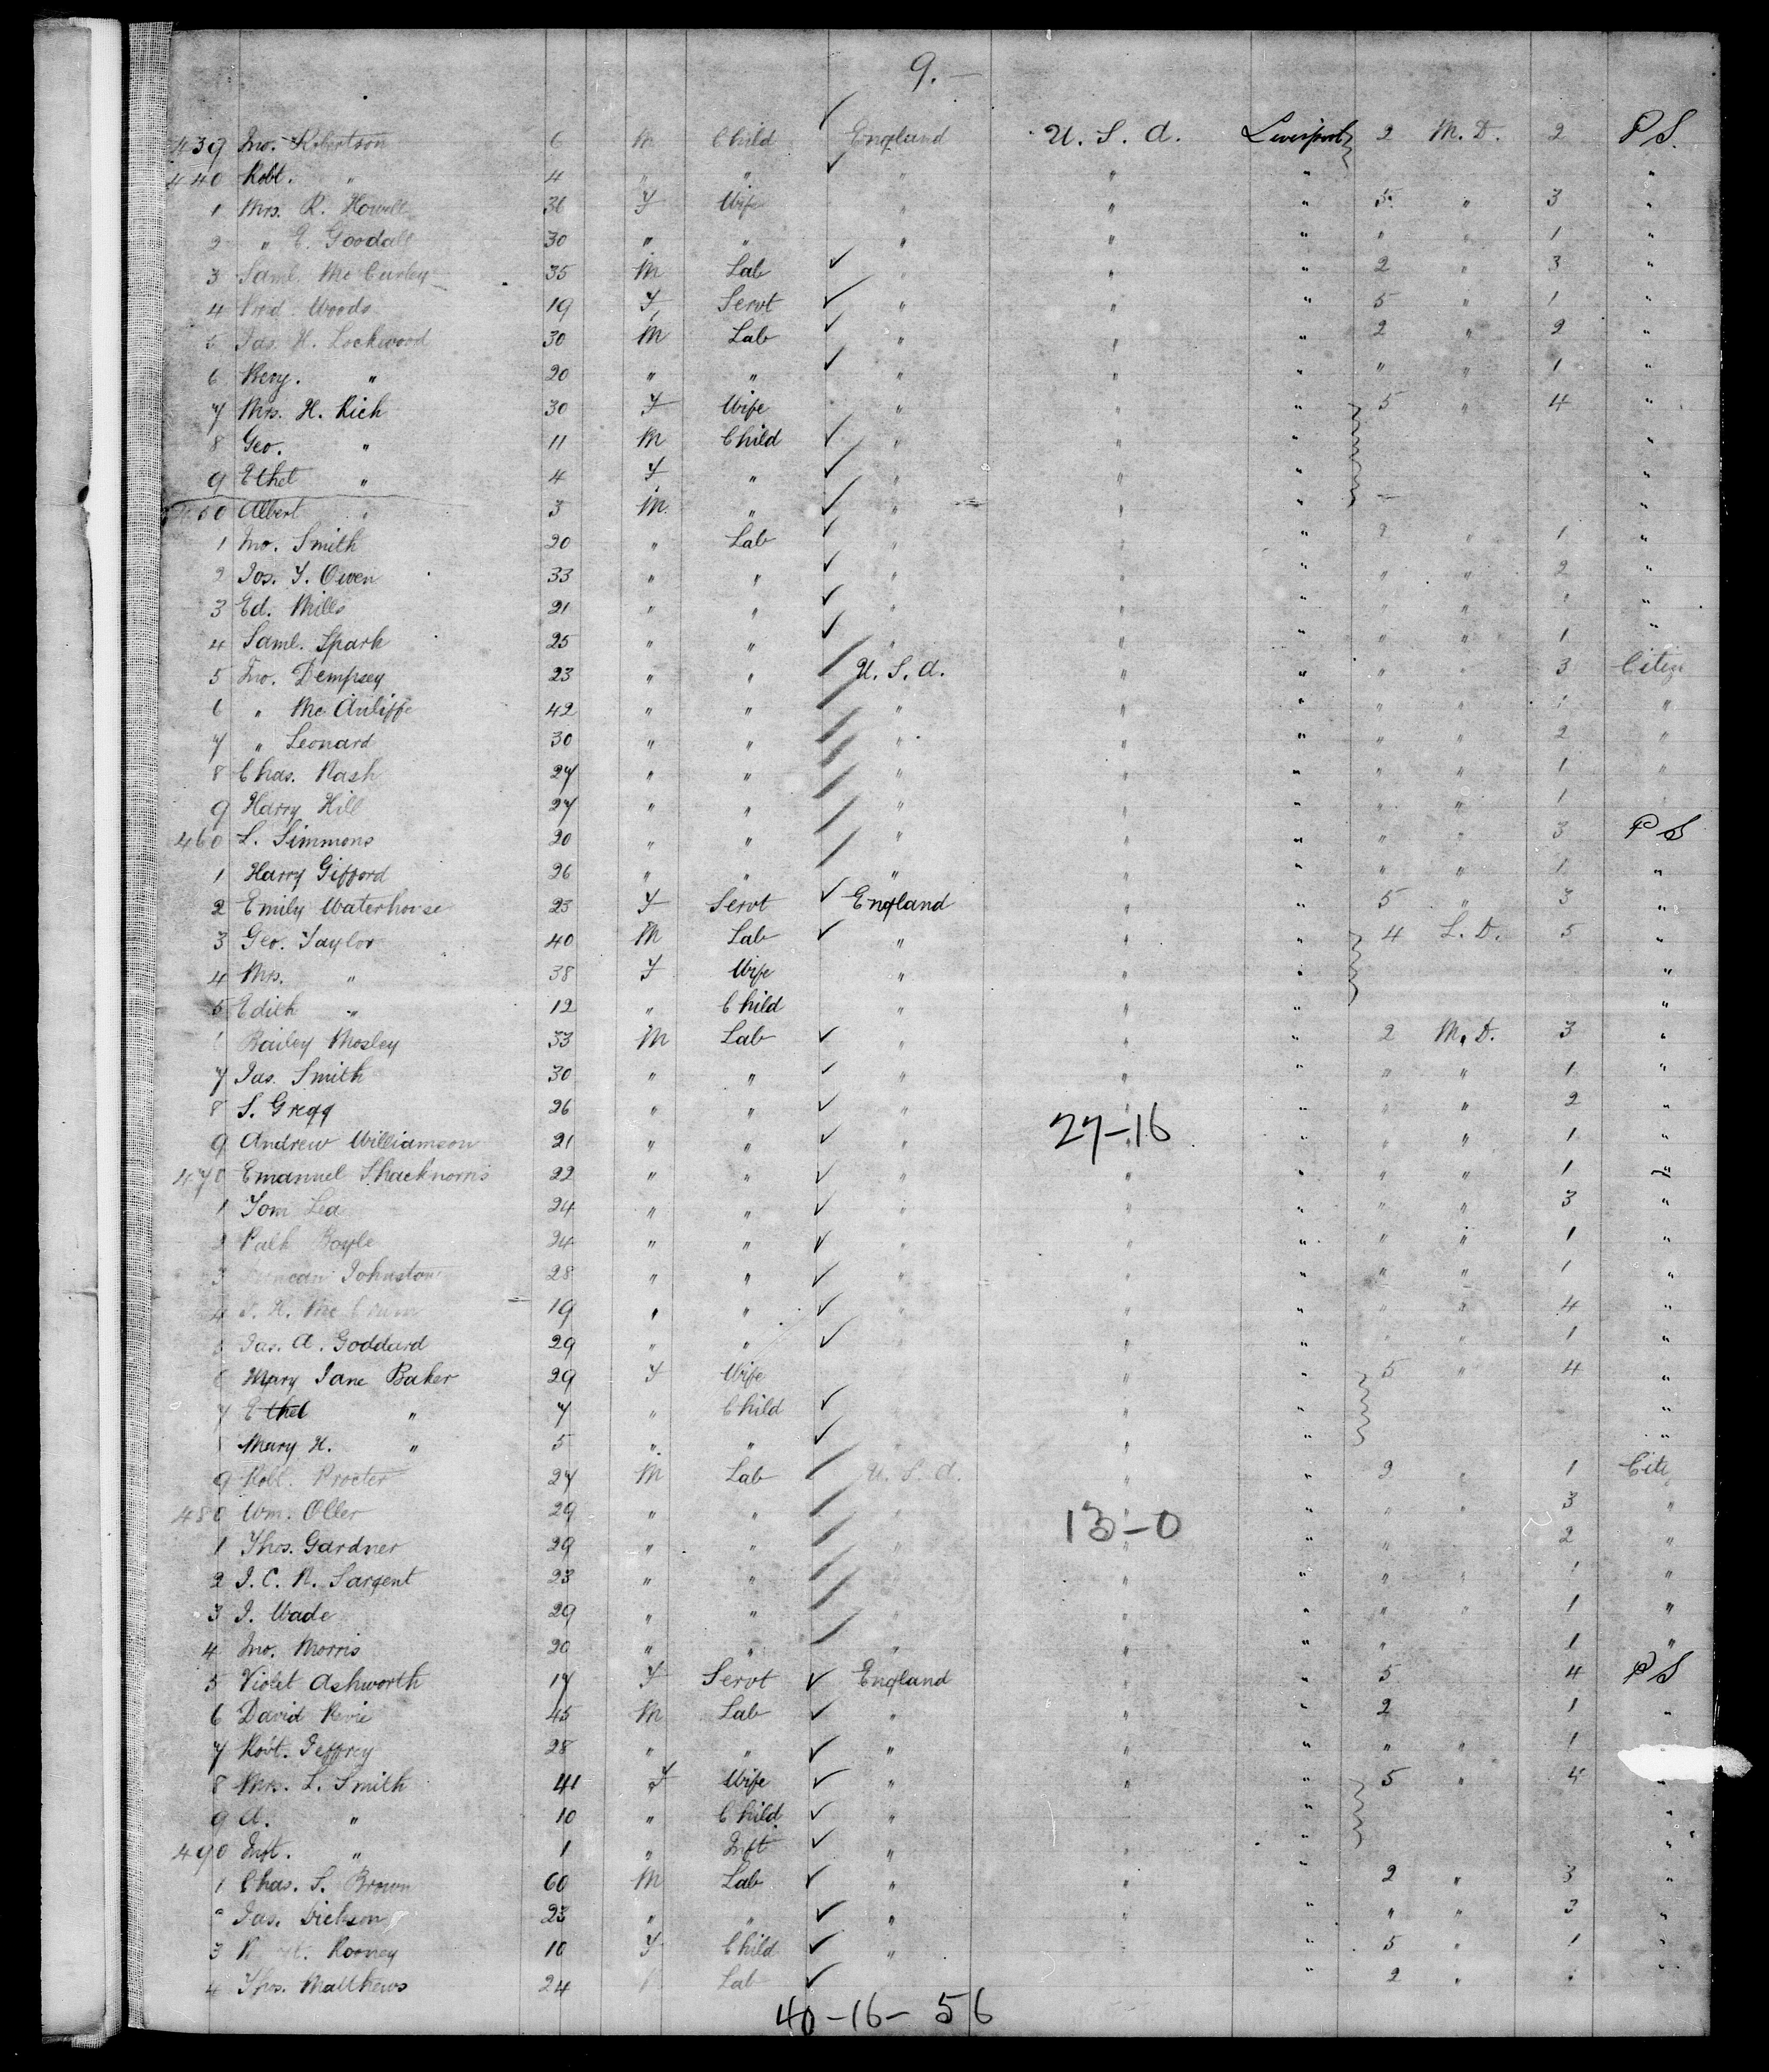 9.—
439 Jno. Robertson 6 M Child England U. S. A. Liverpool 2 M. D. 2 P S.
440 Robt. " 4 " " " " " "
1 Mrs. R. Howell 36 F Wife " " " 5 " 3 "
2 " E. Goodall 30 " " " " " " " 1 "
3 Saml. Mc 35 M Lab " " " 2 " 3 "
4 Woods 19 F Servt " " " 5 " 1 "
5 Jas. H. Lockwood 30 M Lab " " " 2 " 2 "
6 20 " " " " " " " 1 "
7 Mrs. H. Rich 30 F Wife " " " 5 " 4 "
8 Geo. " 11 M Child " " " "
9 Ethel " 4 F " " " " "
450 Albert " 3 M " " " " "
1 Jno. Smith 20 " Lab " " " 2 " 1 "
2 Jos. Y. Owen 33 " " " " " " " 2 "
3 Ed. Mills 21 " " " " " " " 1 "
4 Saml. Spark 25 " " " " " " " 1 "
5 Jno. Dempsey 23 " " U. S. A. " " " " 3 Citiz
6 " Mc Auliffe 42 " " " " " " " 1 "
7 " Leonard 30 " " " " " " " 2 "
8 Chas. Nash 27 " " " " " " " 1 "
9 Harry Hill 27 " " " " " " " 1 "
460 L. Simmons 20 " " " " " " " 3 P S
1 Harry Gifford 26 " " " " " " " 1 "
2 Emily Waterhouse 23 F Servt England " " 5 " 3 "
3 Geo. Taylor 40 M Lab " " " 4 L. D. 5 "
4 Mrs. " 38 F Wife " " " "
5 Edith " 12 " Child " " " "
6 Bailey Mosley 33 M Lab " " " 2 M. D. 3 "
7 Jas. Smith 30 " " " " " " " 1 "
8 S. Gregg 26 " " " " " " " 2 "
9 Andrew Williamson 21 " " " 27-16 " " " 1 "
470 Emanuel Shacknorris 22 " " " " " " " 1 "
1 Tom Lea 24 " " " " " " " 3 "
2 Patk Boyle 24 " " " " " " " 1 "
3 Duncan Johnston 28 " " " " " " " 1 "
4 19 " " " " " " " 4 "
5 Jas. A. Goddard 29 " " " " " " 1 "
6 Mary Jane Baker 29 F Wife " " 5 " 4 "
7 Ethel " 7 " Child " " "
8 Mary H. " 5 " " " " " "
9 Robt. Procter 27 M Lab U. S. A. " " 2 " 1 Citi
480 Wm. Oller 29 " " " 13-0 " " " 3 "
1 Thos. Gardner 29 " " " " " " 2 "
2 J. C. N. Sargent 23 " " " " " " 1 "
3 J. Wade 29 " " " " " " 1 "
4 Jno. Morris 20 " " " " " " 1 "
5 Violet Ashworth 17 F Servt England " " 5 4 P S
6 David 45 M Lab " " " 2 1 "
7 Robt. Jeffrey 28 " " " " " " " 1
8 Mrs. L. Smith 41 F Wife " " " 5 " 4 "
9 A. " 10 " Child " " "
490 Inft. " 1 " Inft " " " "
1 Chas. S. Brown 60 M Lab " " " 2 " 3 "
2 Jas. Dickson 23 " " " " " " " 3 "
3 Rooney 10 F Child " " " 5 " 1 "
4 Thos. Matthews 24 Lab " 2 "
40-16- 56